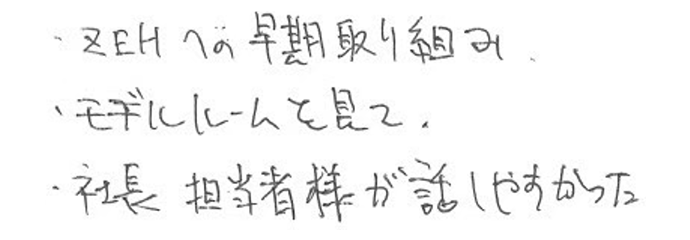 ・ZEHへの早期取り組み.
・モデルルームを見て.
・社長 担当者様が話しやすかった